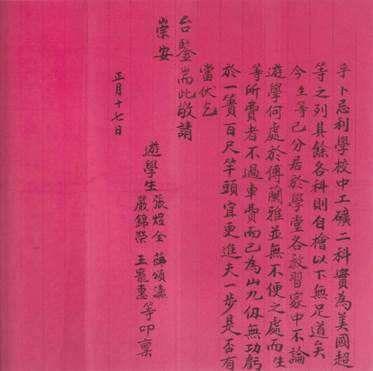 乎卜忌利學校中工礦二科實為美國超
等之列其餘各科則自檜以下無足道矣
今生等已分居於學堂各教習家中不論
遊學何處於傅蘭雅並無不便之處而生
等所費者不過車費而已為山九仞無功虧
於一簣百尺竿頭宜更進一步是否有
當伏乞
台鑒耑此敬請
崇安
遊學生張煜全 薛頌瀛
嚴錦榮 王寵惠等叩稟
正月十七日